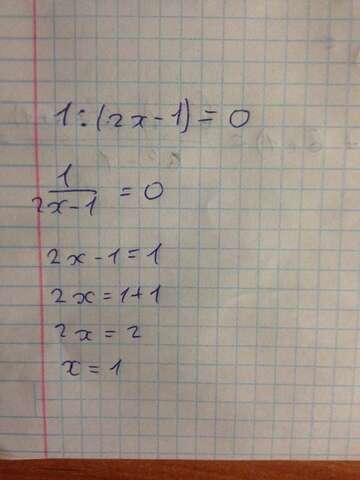 1:(2x-1)=0
1/(2x-1) = 0
2x-1=1
2x=1+1
2x=2
x=1